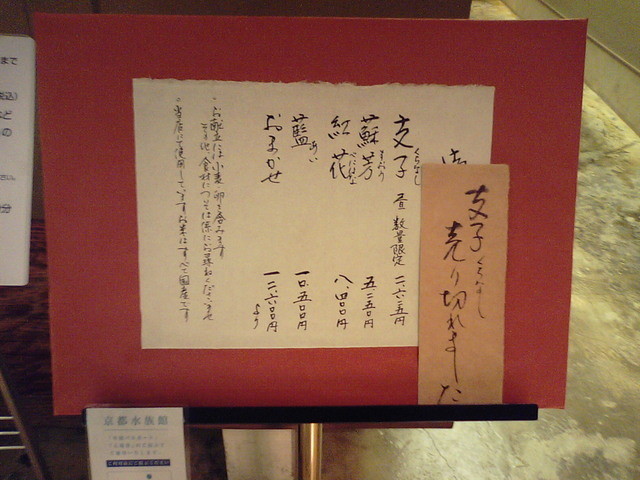 支子 くちなし
売り切れました
支子 くちなし 昼 数量限定 二、六二五円
蘇芳 すおう 五、二五〇円
紅花 べにばな 八、四〇〇円
藍 あい 一〇、五〇〇円
おまかせ 一二、六〇〇円より
・お献立には小麦、卵を含みます
その他、食材については係にお尋ねくださいませ
・当店にて使用していますお米はすべて国産です
京都水族館